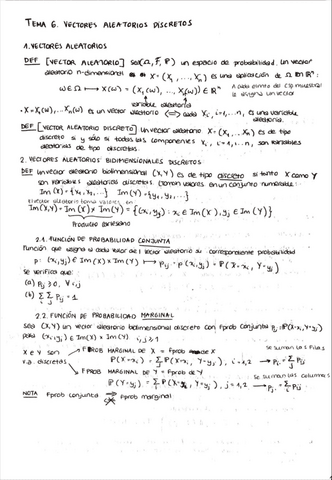 TEMA 6. VECTORES ALEATORIOS DISCRETOS
1. VECTORES ALEATORIOS
DEF [VECTOR ALEATORIO] Sea (Ω, F, P) un espacio de probabilidad. Un vector
aleatorio n-dimensional es X = (X₁, ..., Xn) es una aplicación de Ω en ℝⁿ:
ω ∈ Ω ⟼ X(ω) = (X₁(ω), ..., Xn(ω)) ∈ ℝⁿ
A cada punto del esp. muestral
le asigna un vector
variable aleatoria
• X = X₁(ω), ..., Xn(ω) es un vector aleatorio ⟺ cada Xi, i=1,...n, es una variable
aleatoria.
DEF [VECTOR ALEATORIO DISCRETO] Un vector aleatorio X = (X₁, ..., Xn) es de tipo
discreto si y sólo si todas las componentes Xi, i=1,...,n, son variables
aleatorias de tipo discretas.
2. VECTORES ALEATORIOS BIDIMENSIONALES DISCRETOS
DEF Un vector aleatorio bidimensional (X,Y) es de tipo discreto si tanto X como Y
son variables aleatorias discretas. (toman valores en un conjunto numerable)
Im(X) = {x₁, x₂, ...} Im(Y) = {y₁, y₂, ...}
El vector aleatorio toma valores en
Im(X,Y) = Im(X) × Im(Y) = {(xi, yj) : xi ∈ Im(X), yj ∈ Im(Y)}
Producto cartesiano
2.1. FUNCIÓN DE PROBABILIDAD CONJUNTA
Función que asigna a cada valor del vector aleatorio su correspondiente probabilidad
p: (xi, yj) ∈ Im(X) × Im(Y) ⟼ pij = p(xi, yj) = P(X=xi, Y=yj)
Se verifica que:
(a) pij ≥ 0, ∀ i,j
(b) Σi Σj pij = 1
2.2. FUNCIÓN DE PROBABILIDAD MARGINAL
Sea (X,Y) un vector aleatorio bidimensional discreto con fprob conjunta pij = P(X=xi, Y=yj)
para (xi, yj) ∈ Im(X) × Im(Y) i,j ≥ 1
se suman las filas
X e Y son
v.a. discretas
FPROB MARGINAL DE X = Fprob de X
P(X=xi) = Σj P(X=xi, Y=yj), i=1,2 ... → pi. = Σj pij
se suman las columnas
FPROB MARGINAL DE Y = Fprob de Y
P(Y=yj) = Σi P(X=xi, Y=yj), j=1,2 ... → p.j = Σi pij
NOTA Fprob conjunta ⇏ fprob marginal